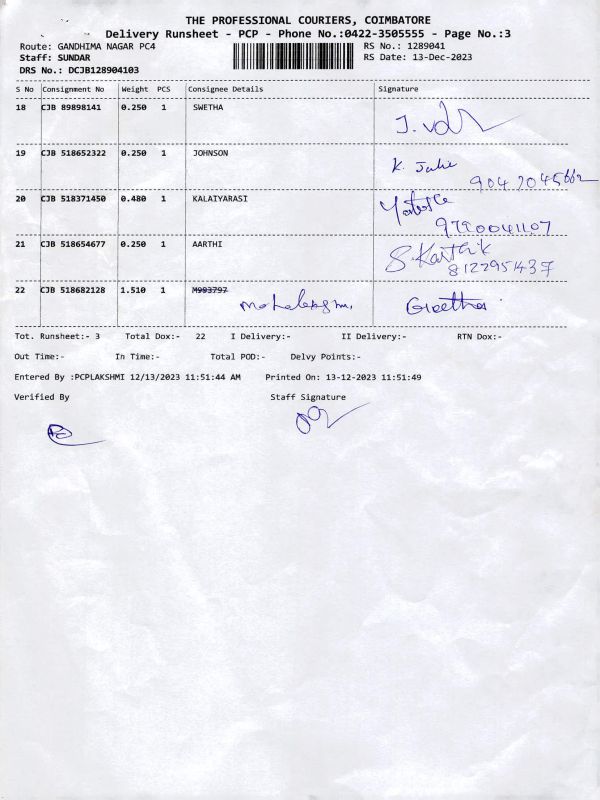 THE PROFESSIONAL COURIERS, COIMBATORE
Delivery Runsheet - PCP - Phone No.:0422-3505555 - Page No.:3
Route: GANDHIMA NAGAR PC4 RS No.: 1289041
Staff: SUNDAR RS Date: 13-Dec-2023
DRS No.: DCJB128904103
S No Consignment No Weight PCS Consignee Details Signature
18 CJB 89898141 0.250 1 SWETHA
19 CJB 518652322 0.250 1 JOHNSON K. Julie
9047045662
20 CJB 518371450 0.480 1 KALAIYARASI
9790041107
21 CJB 518654677 0.250 1 AARTHI S. Karthik
8122951437
22 CJB 518682128 1.510 1 M993797
Geetha
Tot. Runsheet:- 3 Total Dox:- 22 I Delivery:- II Delivery:- RTN Dox:-
Out Time:- In Time:- Total POD:- Delvy Points:-
Entered By :PCPLAKSHMI 12/13/2023 11:51:44 AM Printed On: 13-12-2023 11:51:49
Verified By Staff Signature